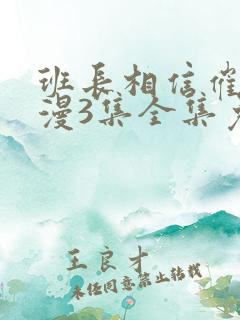 班长相信催
漫3集全集
王良才
未经同意禁止转载